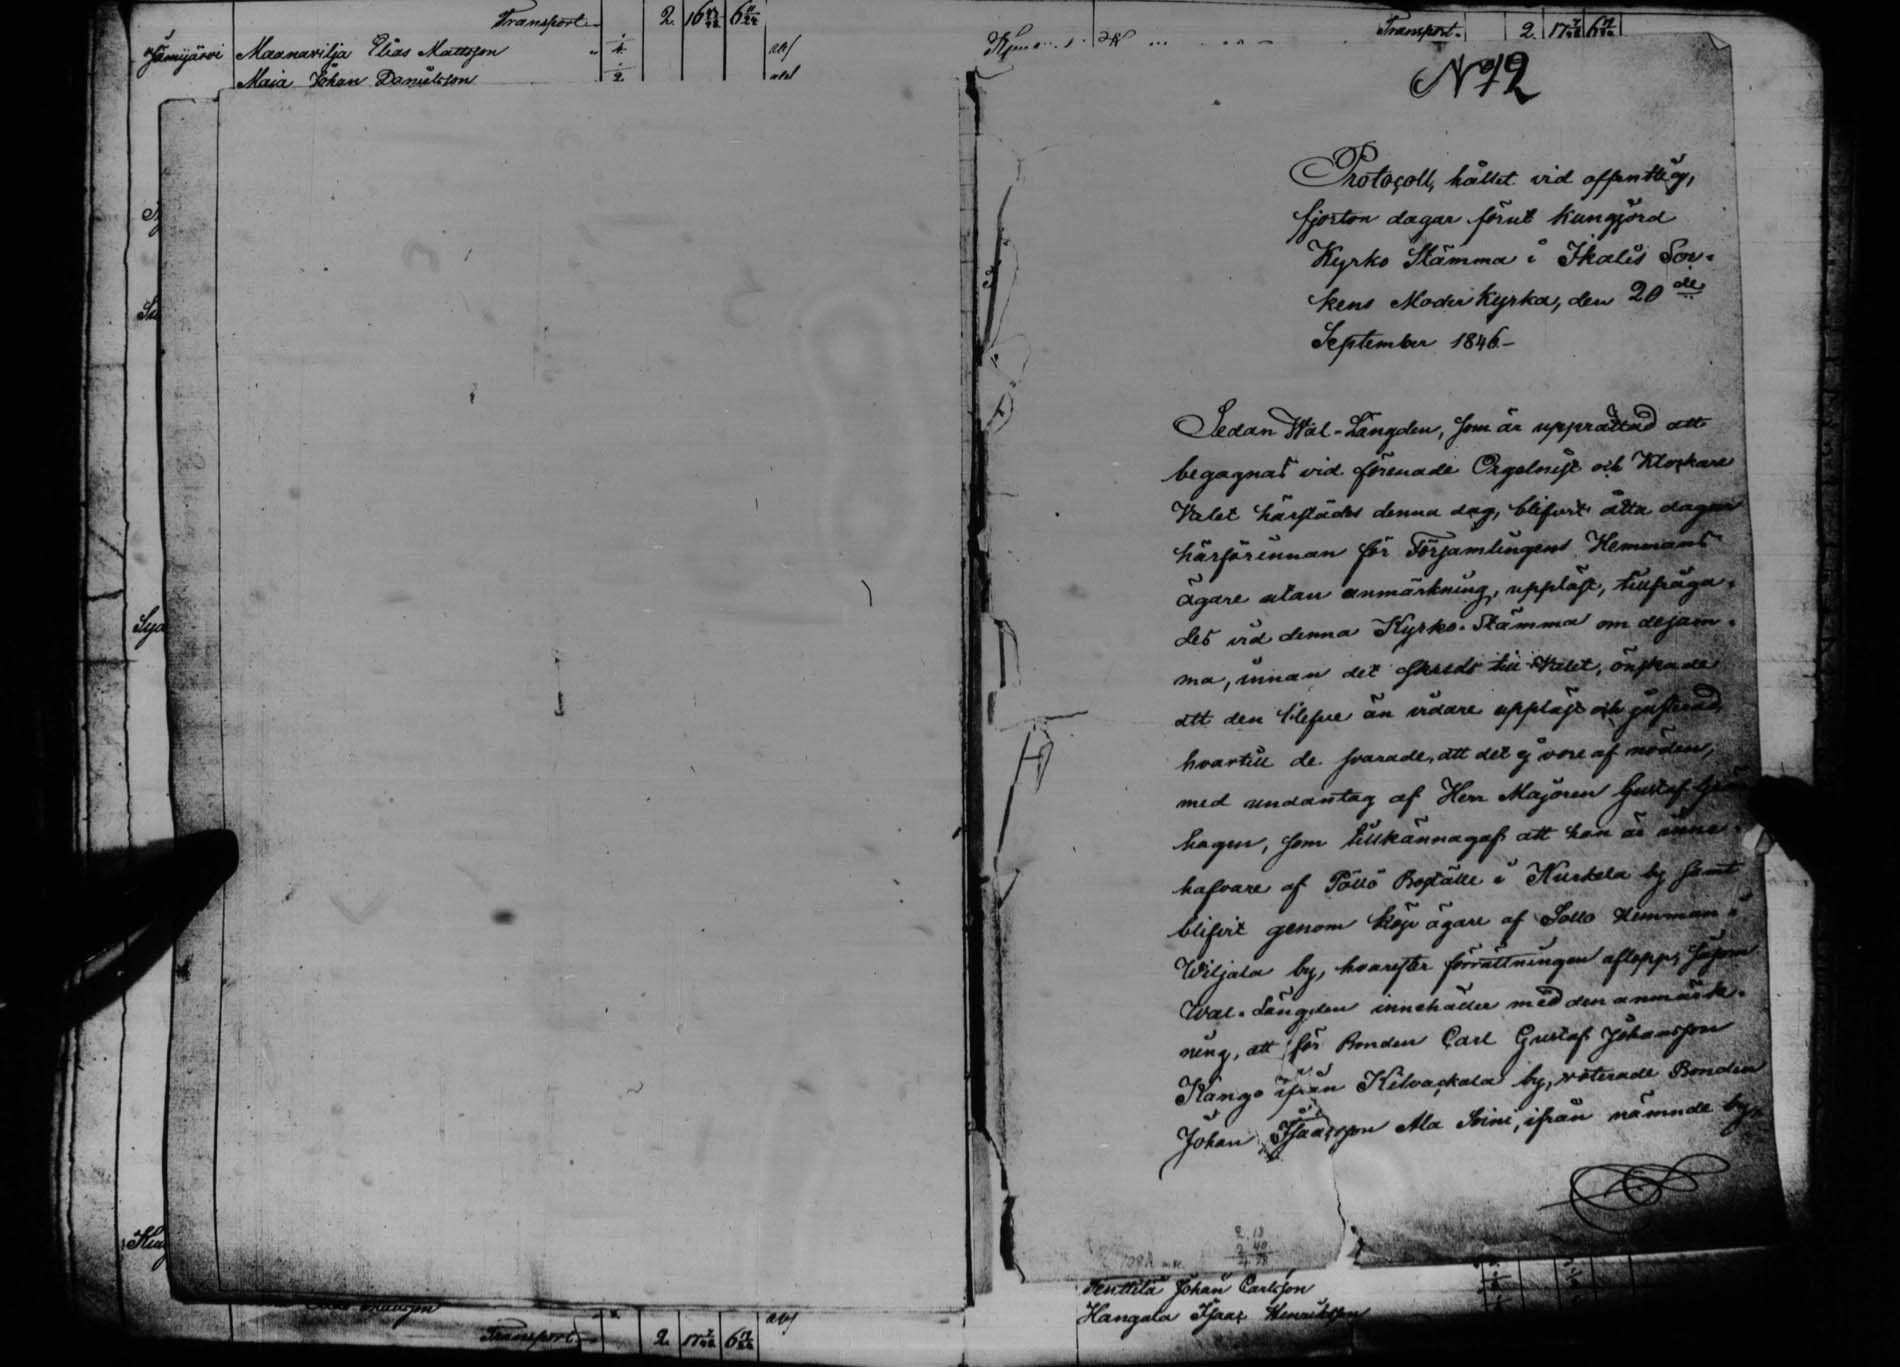 Transport
2. 16 43/48 6 11/24
Jämijärvi Maanavilja Elias Mattsson 1/4
Maia Johan Danielsson 1/2
Transport 2. 17 6
No 12
Protocoll, hållet vid offentlig,
fjorton dagar förut kungjord
Kyrko Stämma i Ikalis Soc-
kens Moder kyrka, den 20de
September 1846.-
Sedan Wal-Längden, som är upprättad att
begagnas vid förenade Orgelnist och Klockare
Valet härstädes denna dag, blifvit åtta dagar
härförinnan för Församlingens Hemmans
ägare utan anmärkning, uppläst, tillfråga-
des vid denna Kyrko-Stämma om desam-
ma, innan det skreds till Valet, önskade
att den blefve än vidare uppläst och justerad,
hvartill de svarade, att det ej vore af nöden,
med undantag af Herr Majoren Gustaf
hagen, som tillkännagaf att han är inne-
hafvare af Pöllö Boställe i Kurkela by samt
blifvit genom köp ägare af Sollo Hemman i
Wiljala by, hvarefter förrättningen aflopp, såsom
Wal-Längden innehåller med den anmärk-
ning, att för Bonden Carl Gustaf Johansson
Kango ifrån Kilvackala by, voterade Bonden
Johan Isaacsson Ala Soini, ifrån nämnde by.
2 13
2 40
Penttilä Johan Carlsson
Hangala Isaac Henriksson
Transport 2. 17 6